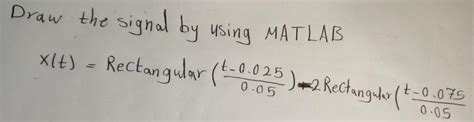 Draw the signal by using MATLAB
x(t) = Rectangular (t-0.025/0.05) - 2 Rectangular (t-0.075/0.05